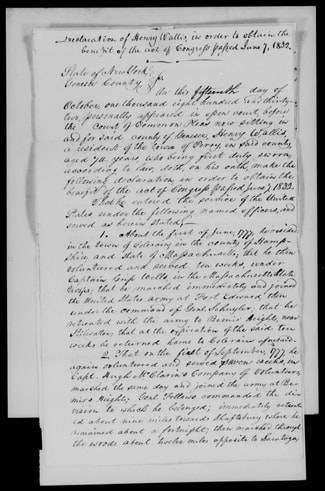 Declaration of Henry Wallis, in order to obtain the
benefit of the act of Congress passed June 7, 1832.
State of New York
Genesee County
On this fifteenth day of
October one thousand eight hundred and thirty
two, personally appeared in open court, before
the Court of Common Pleas now sitting in
and for said county of Genesee, Henry Wallis,
a resident of the town of Perry, in said county,
aged 74 years who being first duly sworn
according to law, doth, on his oath, make the
following declaration in order to obtain the
benefit of the act of Congress passed June 7, 1832.
That he entered the service of the United
States under the following named officers, and
served as herein stated.
1. About the first of June, 1777, he resided
in the town of Colerain in the county of Hamp-
shire and State of Massachusetts, that he then
volunteered and served ten weeks under
Captain Wells in the Massachusetts
troops; that he marched immediately and joined
the United States army at Fort Edward, then
under the command of Genl. Schuyler, that he
retreated with the army to Bemis' Heights, near
Stillwater, that at the expiration of the said ten
weeks he returned home to Colerain
2. That on the first of September, 1777 he
again volunteered and served weeks, in
Capt. Hugh McClarin's Company of Volunteers,
marched the same day and joined the army at Be-
mis's Heights; Genl. Fellows commanded the di-
vision to which he belonged; immediately retreat-
ed about nine miles towards Shaftsbury where he
remained about a fortnight; then marched through
the woods about twelve miles opposite to Saratoga,